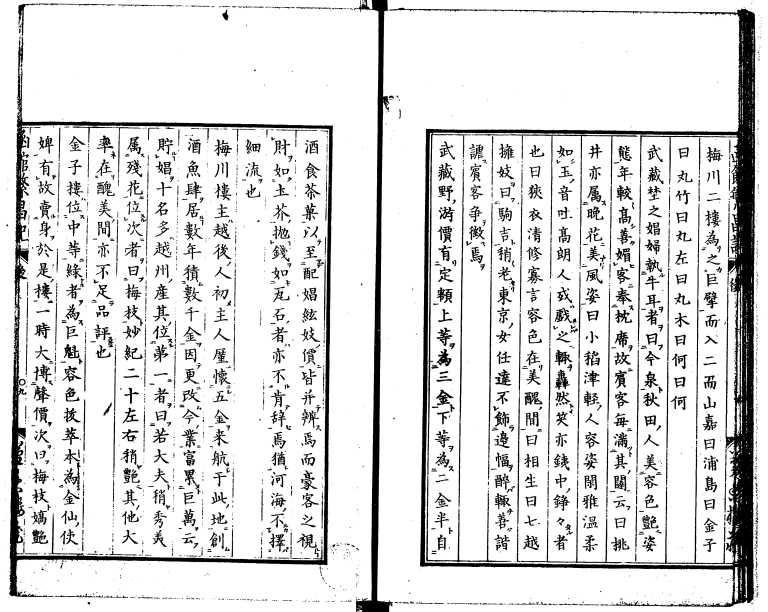 梅川二樓為之巨擘而入二而山嘉曰浦島曰金子
曰丸竹曰丸左曰丸木曰何曰何
武藏埜之娼婦執牛耳者曰今泉秋田人美容色艷姿
態年較高善媚客奉枕席故賓客每滿其闥云曰桃
井亦属晚花美風姿曰小稻津輕人容姿閑雅温柔
如玉音吐高朗人或戲之輙轟然笑亦錢中錚々者
也曰狹衣清修寡言容色在美醜間曰相生曰七越
擁妓曰駒吉稍老東京女任達不飾邊幅醉輙善諧
謔賓客爭徵焉
武藏野游價有定額上等為三金下等為二金半自
酒食茶菓以至配娼絃妓價皆并辨焉而豪客之視
財如土芥抛錢如瓦石者亦不肯辞焉猶河海不擇
細流也
梅川樓主越後人初主人屋懷五金来航于此地創
酒魚肆居數年積數千金因更改今業富累巨萬云
貯娼十名多越州産其位第一者曰若大夫稍秀美
属殘花位次者曰梅枝妙紀二十左右稍艷其他大
率在醜美間亦不足品評也
金子樓位中等緣者為巨魁容色拔萃本為金仙使
婢有故賣身於是樓一時大博聲價次曰梅枝嬌艷